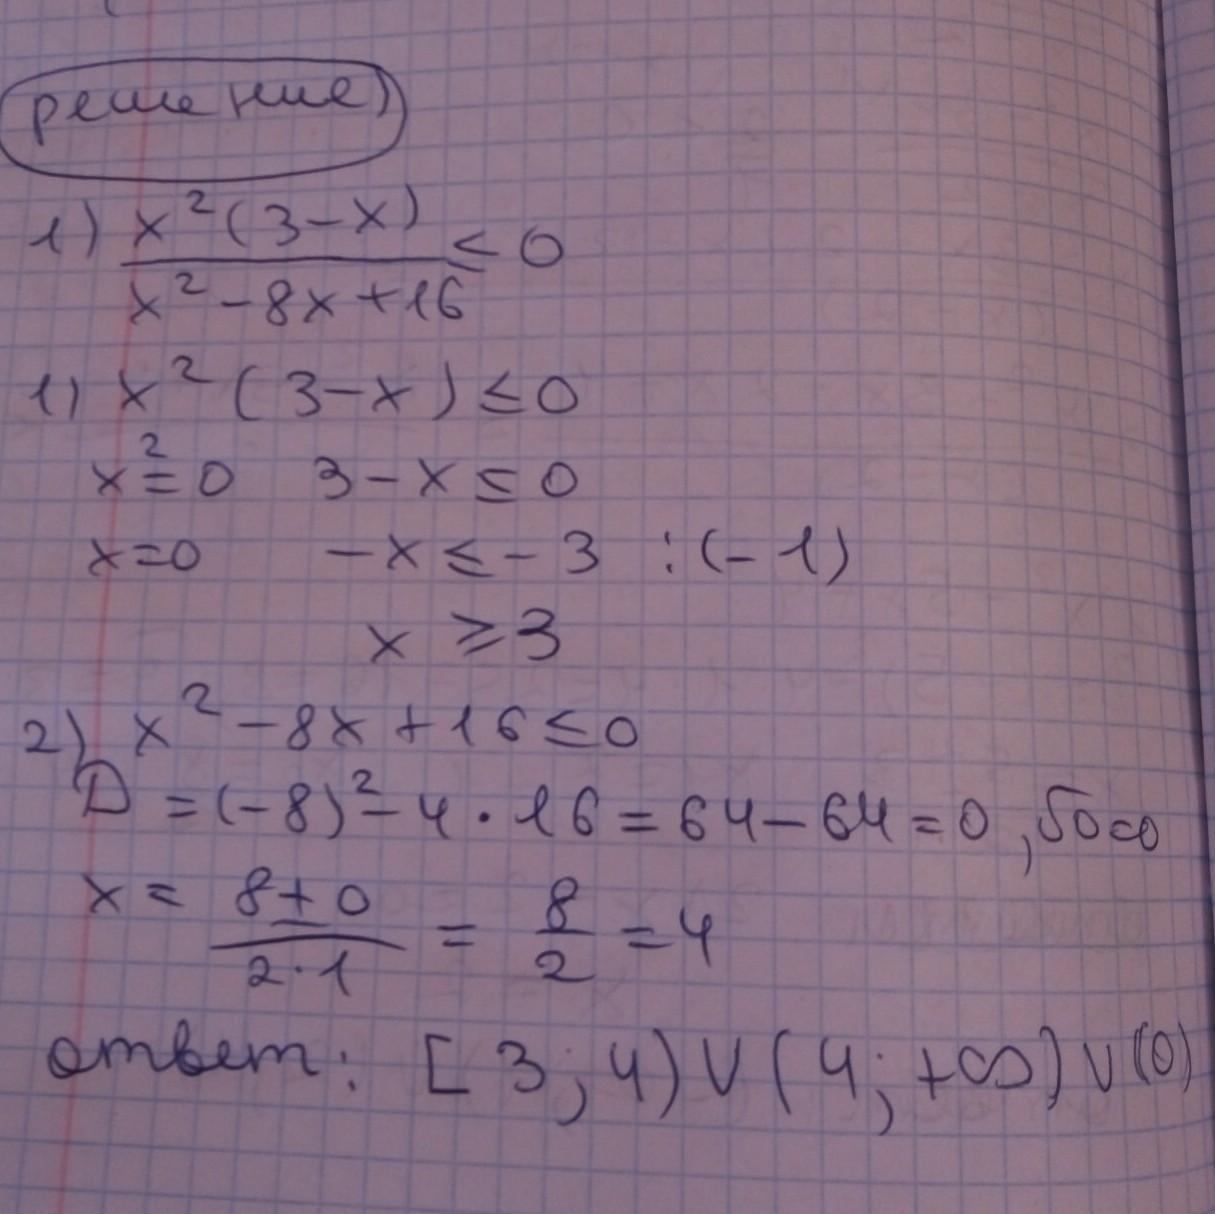 решение
1) x²(3-x)/x²-8x+16 ≤ 0
1) x²(3-x) ≤ 0
x²=0 3-x ≤ 0
x=0 -x ≤ -3 :(-1)
x ≥ 3
2) x²-8x+16 ≤ 0
D = (-8)²-4·16 = 64-64 = 0, √0=0
x = 8±0/2·1 = 8/2 = 4
ответ: [3;4)∪(4;+∞)∪(0)